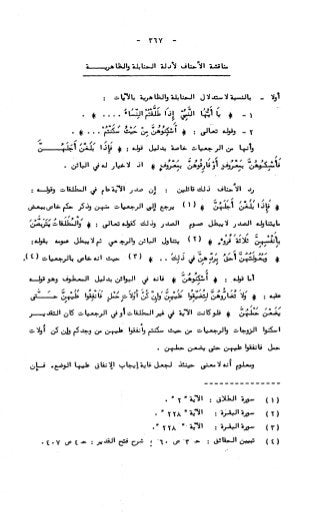 - ٢٦٧ -
مناقشة الأحناف لأدلة الحنابلة والظاهرية
أولا - بالنسبة لاستدلال الحنابلة والظاهرية بالآيات :
١ - ﴿ يَا أَيُّهَا النَّبِيُّ إِذَا طَلَّقْتُمُ النِّسَاءَ .... ﴾
٢ - وقوله تعالى : ﴿ أَسْكِنُوهُنَّ مِنْ حَيْثُ سَكَنْتُمْ ... ﴾
وأنها من الرجعيات خاصة بدليل قوله : ﴿ فَإِذَا بَلَغْنَ أَجَلَهُنَّ
فَأَمْسِكُوهُنَّ بِمَعْرُوفٍ أَوْ فَارِقُوهُنَّ بِمَعْرُوفٍ ﴾ اذ لا خيار له في البائن .
رد الأحناف ذلك قائلين : إن صدر الآية عام في المطلقات وقوله :
﴿ فَإِذَا بَلَغْنَ أَجَلَهُنَّ ﴾ (١) يرجع إلى الرجعيات منهن وذكر حكم خاص ببعض
ما يتناوله الصدر لا يبطل عموم الصدر وذلك كقوله تعالى : ﴿ وَالْمُطَلَّقَاتُ يَتَرَبَّصْنَ
بِأَنْفُسِهِنَّ ثَلَاثَةَ قُرُوءٍ ﴾ (٢) يتناول البائن والرجعي ثم لا يبطل عمومه بقوله :
﴿ وَبُعُولَتُهُنَّ أَحَقُّ بِرَدِّهِنَّ فِي ذَلِكَ .. ﴾ (٣) حيث انه خاص بالرجعيات (٤).
أما قوله : ﴿ أَسْكِنُوهُنَّ ﴾ فانه في البوائن بدليل المعطوف وهو قوله
عقبه : ﴿ وَلَا تُضَارُّوهُنَّ لِتُضَيِّقُوا عَلَيْهِنَّ وَإِنْ كُنَّ أُولَاتِ حَمْلٍ فَأَنْفِقُوا عَلَيْهِنَّ حَتَّى
يَضَعْنَ حَمْلَهُنَّ ﴾ فلو كانت الآية في غير المطلقات أو في الرجعيات كان التقدير
اسكنوا الزوجات والرجعيات من حيث سكنتم وأنفقوا عليهن من وجدكم وإن كن أولات
حمل فانفقوا عليهن حتى يضعن حملهن .
ومعلوم أنه لا معنى حينئذ لجعل غاية إيجاب الإنفاق عليها الوضع، فإن
(١) سورة الطلاق : الآية " ٢ " .
(٢) سورة البقرة : الآية " ٢٢٨ " .
(٣) سورة البقرة : الآية " ٢٢٨ " .
(٤) تبيين الحقائق : حـ ٣ ص ٦٠؛ شرح فتح القدير : حـ ٤ ص ٤٠٧